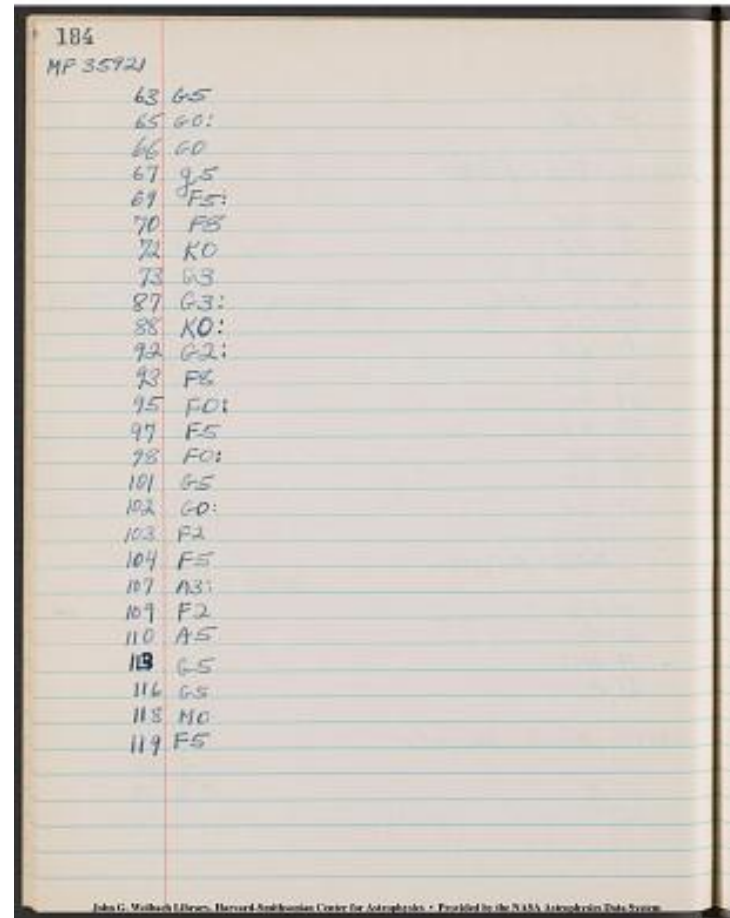 184
MF 35921
63 G5
65 G0:
66 G0
67 g5
69 F5:
70 F8
72 K0
73 G3
87 G3:
88 K0:
92 G2:
93 F8
95 F0:
97 F5
98 F0:
101 G5
102 G0:
103 F2
104 F5
107 A3:
109 F2
110 A5
113 G5
116 G5
118 M0
119 F5
John G. Wolbach Library, Harvard-Smithsonian Center for Astrophysics • Provided by the NASA Astrophysics Data System